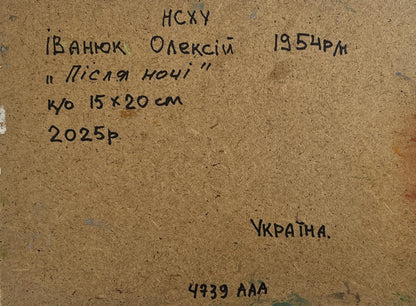 НСХУ
Іванюк Олексій 1954р/н
„Після ночі"
к/о 15×20 см
2025р
Україна.
4739 ААА